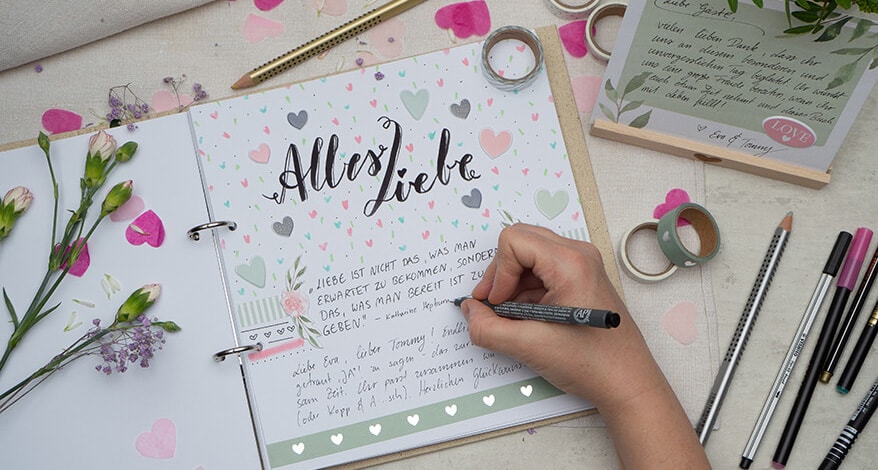 Alles Liebe
„LIEBE IST NICHT DAS, WAS MAN
ERWARTET ZU BEKOMMEN, SONDERN
DAS, WAS MAN BEREIT IST ZU
GEBEN." – Katharine Hepburn
Liebe Eva, lieber Tommy! Endlich
getraut „JA" zu sagen
sam Zeit. Ihr passt zusammen wie
(oder Kopp & A...sch). Herzlichen Glückwunsch
Liebe Gäste,
vielen lieben Dank, dass ihr
uns an diesem besonderen und
unvergesslichen Tag begleitet. Ihr würdet
uns eine große Freude bereiten, wenn ihr
euch etwas Zeit nehmt und dieses Buch
mit Leben füllt!
♡ Eva & Tommy
LOVE